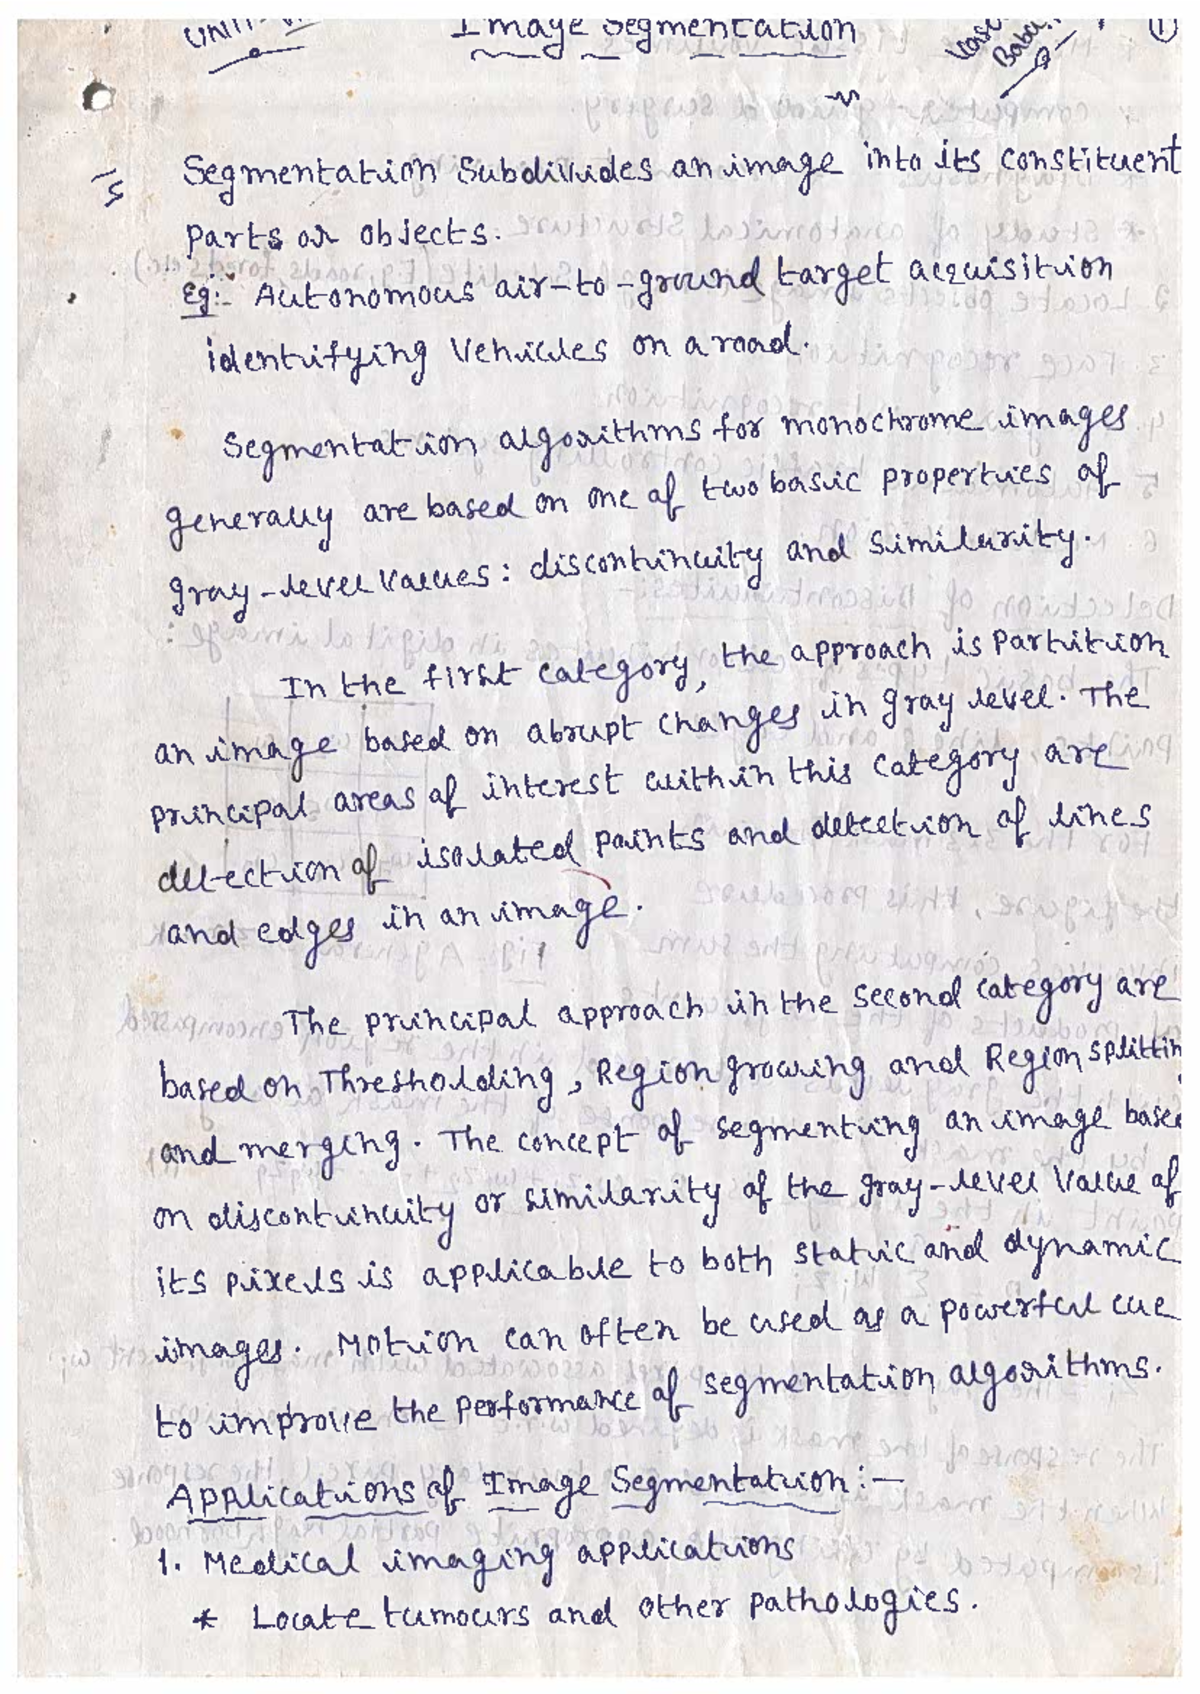 Image Segmentation
①
Segmentation Subdivides an image into its constituent
parts or objects.
Eg:- Autonomous air-to-ground target acquisition
identifying Vehicles on a road.
Segmentation algorithms for monochrome images
generally are based on one of two basic properties of
gray-level values: discontinuity and similarity.
In the first category, the approach is Partition
an image based on abrupt changes in gray level. The
principal areas of interest within this category are
detection of isolated points and detection of lines
and edges in an image.
The principal approach in the second category are
based on Thresholding, Region growing and Region splittin
and merging. The concept of segmenting an image base
on discontinuity or similarity of the gray-level Value of
its pixels is applicable to both static and dynamic
images. Motion can often be used as a powerful cue
to improve the performance of segmentation algorithms.
Applications of Image Segmentation:-
1. Medical imaging applications
* Locate tumours and other pathologies.